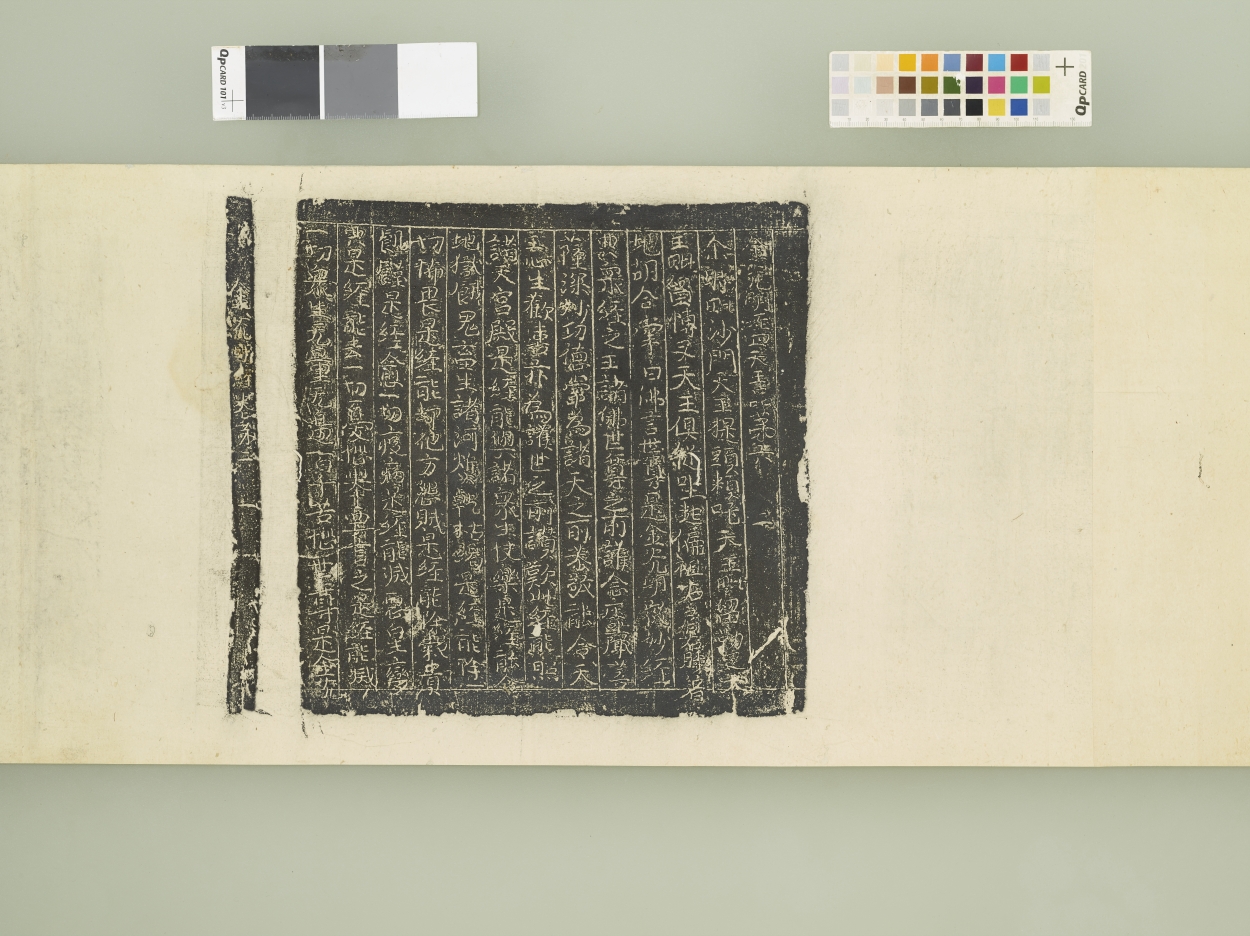 金光明經四天王品第六
尒時毗沙門天王提頭賴吒天王毗留勒叉天
王毗留博叉天王俱從坐起偏袒右肩右膝著
地胡合掌白佛言世尊是金光明微妙經
典眾經之王諸佛世尊之所護念莊嚴菩
薩深妙功德常為諸天之所恭敬能令天
王心生歡喜亦為護世之所讚歎此經能照
諸天宮殿是經能與諸眾生快樂是經能令
地獄餓鬼畜生諸河燋乾枯竭是經能除一
切怖畏是經能却他方怨賊是經能除穀貴
飢饉是經能愈一切疫病是經能滅惡星變
異是經能除一切憂惱舉要言之是經能滅
一切眾生無量無邊百千苦惱世尊是金光
金光明經卷第二
QpCARD 101
QpCARD